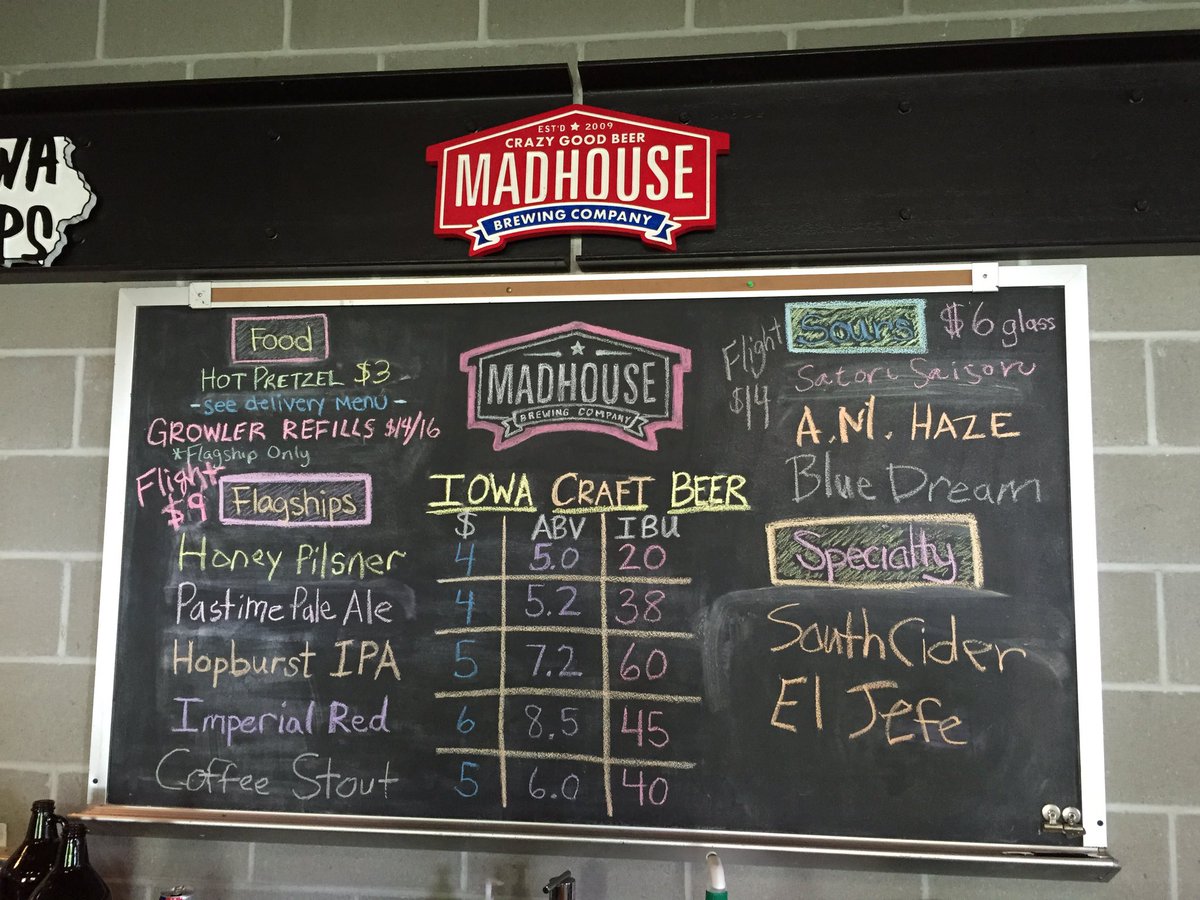 WA
PS
EST'D ★ 2009
CRAZY GOOD BEER
MADHOUSE
BREWING COMPANY
Food
HOT PRETZEL $3
-see delivery MENU-
GROWLER REFILLS $14/16
*Flagship Only
Flight
$9
Flagships
MADHOUSE
BREWING COMPANY
IOWA CRAFT BEER
$ ABV IBU
Honey Pilsner 4 5.0 20
Pastime Pale Ale 4 5.2 38
Hopburst IPA 5 7.2 60
Imperial Red 6 8.5 45
Coffee Stout 5 6.0 40
Flight
$14
Sours $6 glass
Satori Saison
A.M. HAZE
Blue Dream
Specialty
South Cider
El Jefe